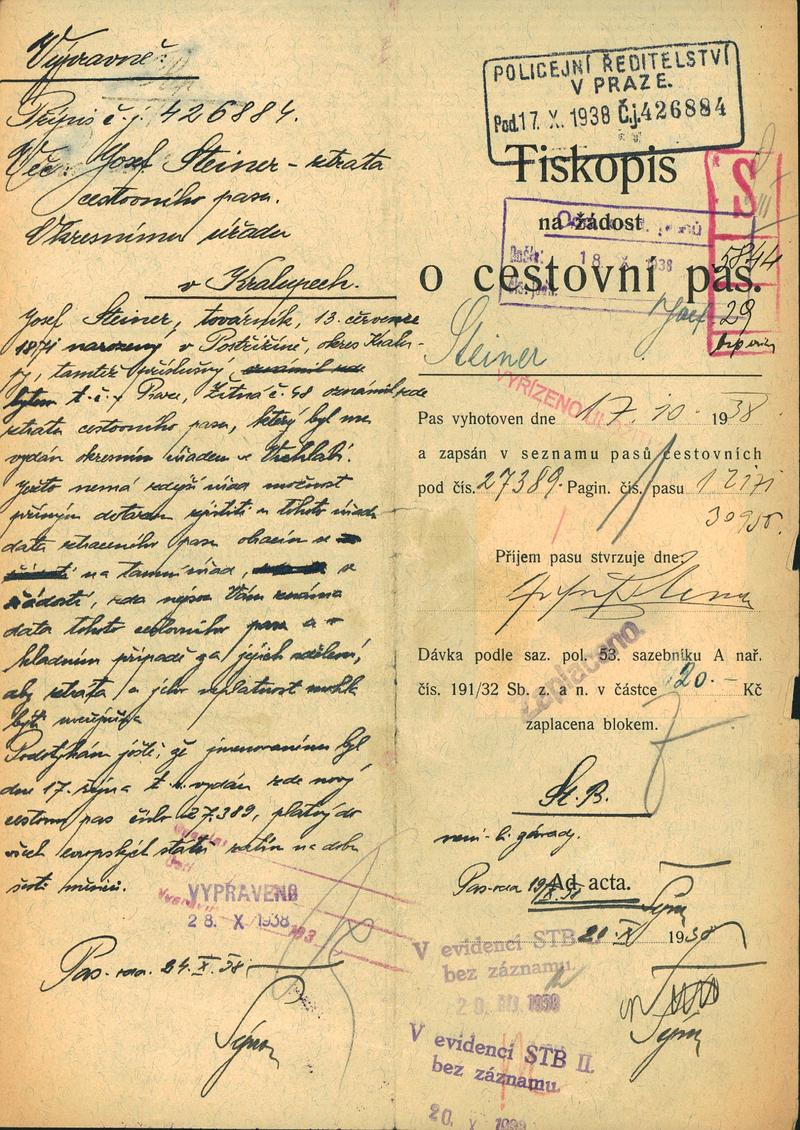 Výpravně:
Přípis č. j. 426884.
Věc: Josef Steiner – ztráta
cestovního pasu.
Okresnímu úřadu
v Kralupech.
Josef Steiner, továrník, 13. července
1871 narozený v Postřižíně, okres Kralu-
py, tamtéž příslušný,
bytem t. č. v Praze, Žitná č. 48 oznámil zde
ztrátu cestovního pasu, který byl mu
vydán okresním úřadem ve Vrchlabí.
Ježto nemá zdejší úřad možnost
přímým dotazem zjistiti u tohoto úřadu
data ztraceného pasu obracím se
na tamní úřad, s
žádostí, zda nejsou Vám známa
data tohoto cestovního pasu a v
kladném případě za jejich sdělení,
aby ztráta a jeho neplatnost mohla
býti uveřejněna
Podotýkám ještě, že jmenovanému byl
dne 17. října t. r. vydán zde nový
cestovní pas číslo 27.389, platný do
všech evropských států zatím na dobu
šesti měsíců.
VYPRAVENO
28. X 1938
Pas. 24. X. 38
POLICEJNÍ ŘEDITELSTVÍ
V PRAZE.
Pod. 17. X. 1938 Č.j. 426884
Tiskopis
S
na žádost
18. X 1938
5844
o cestovní pas.
29
Josef
Steiner
VYŘÍZENO
Pas vyhotoven dne 17. 10. 1938
a zapsán v seznamu pasů cestovních
pod čís. 27389. Pagin. čís. pasu
Příjem pasu stvrzuje dne:
Dávka podle saz. pol. 53. sazebníku A nař.
čís. 191/32 Sb. z. a n. v částce 20.– Kč
Zaplaceno
zaplacena blokem.
St. B.
není-li závady.
Ad acta.
20. X 1938
V evidenci STB II.
bez záznamu.
V evidenci STB II.
bez záznamu.
20. X 1938